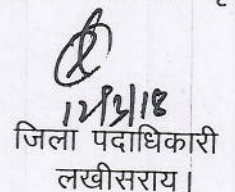 12/3/18
जिला पदाधिकारी
लखीसराय।